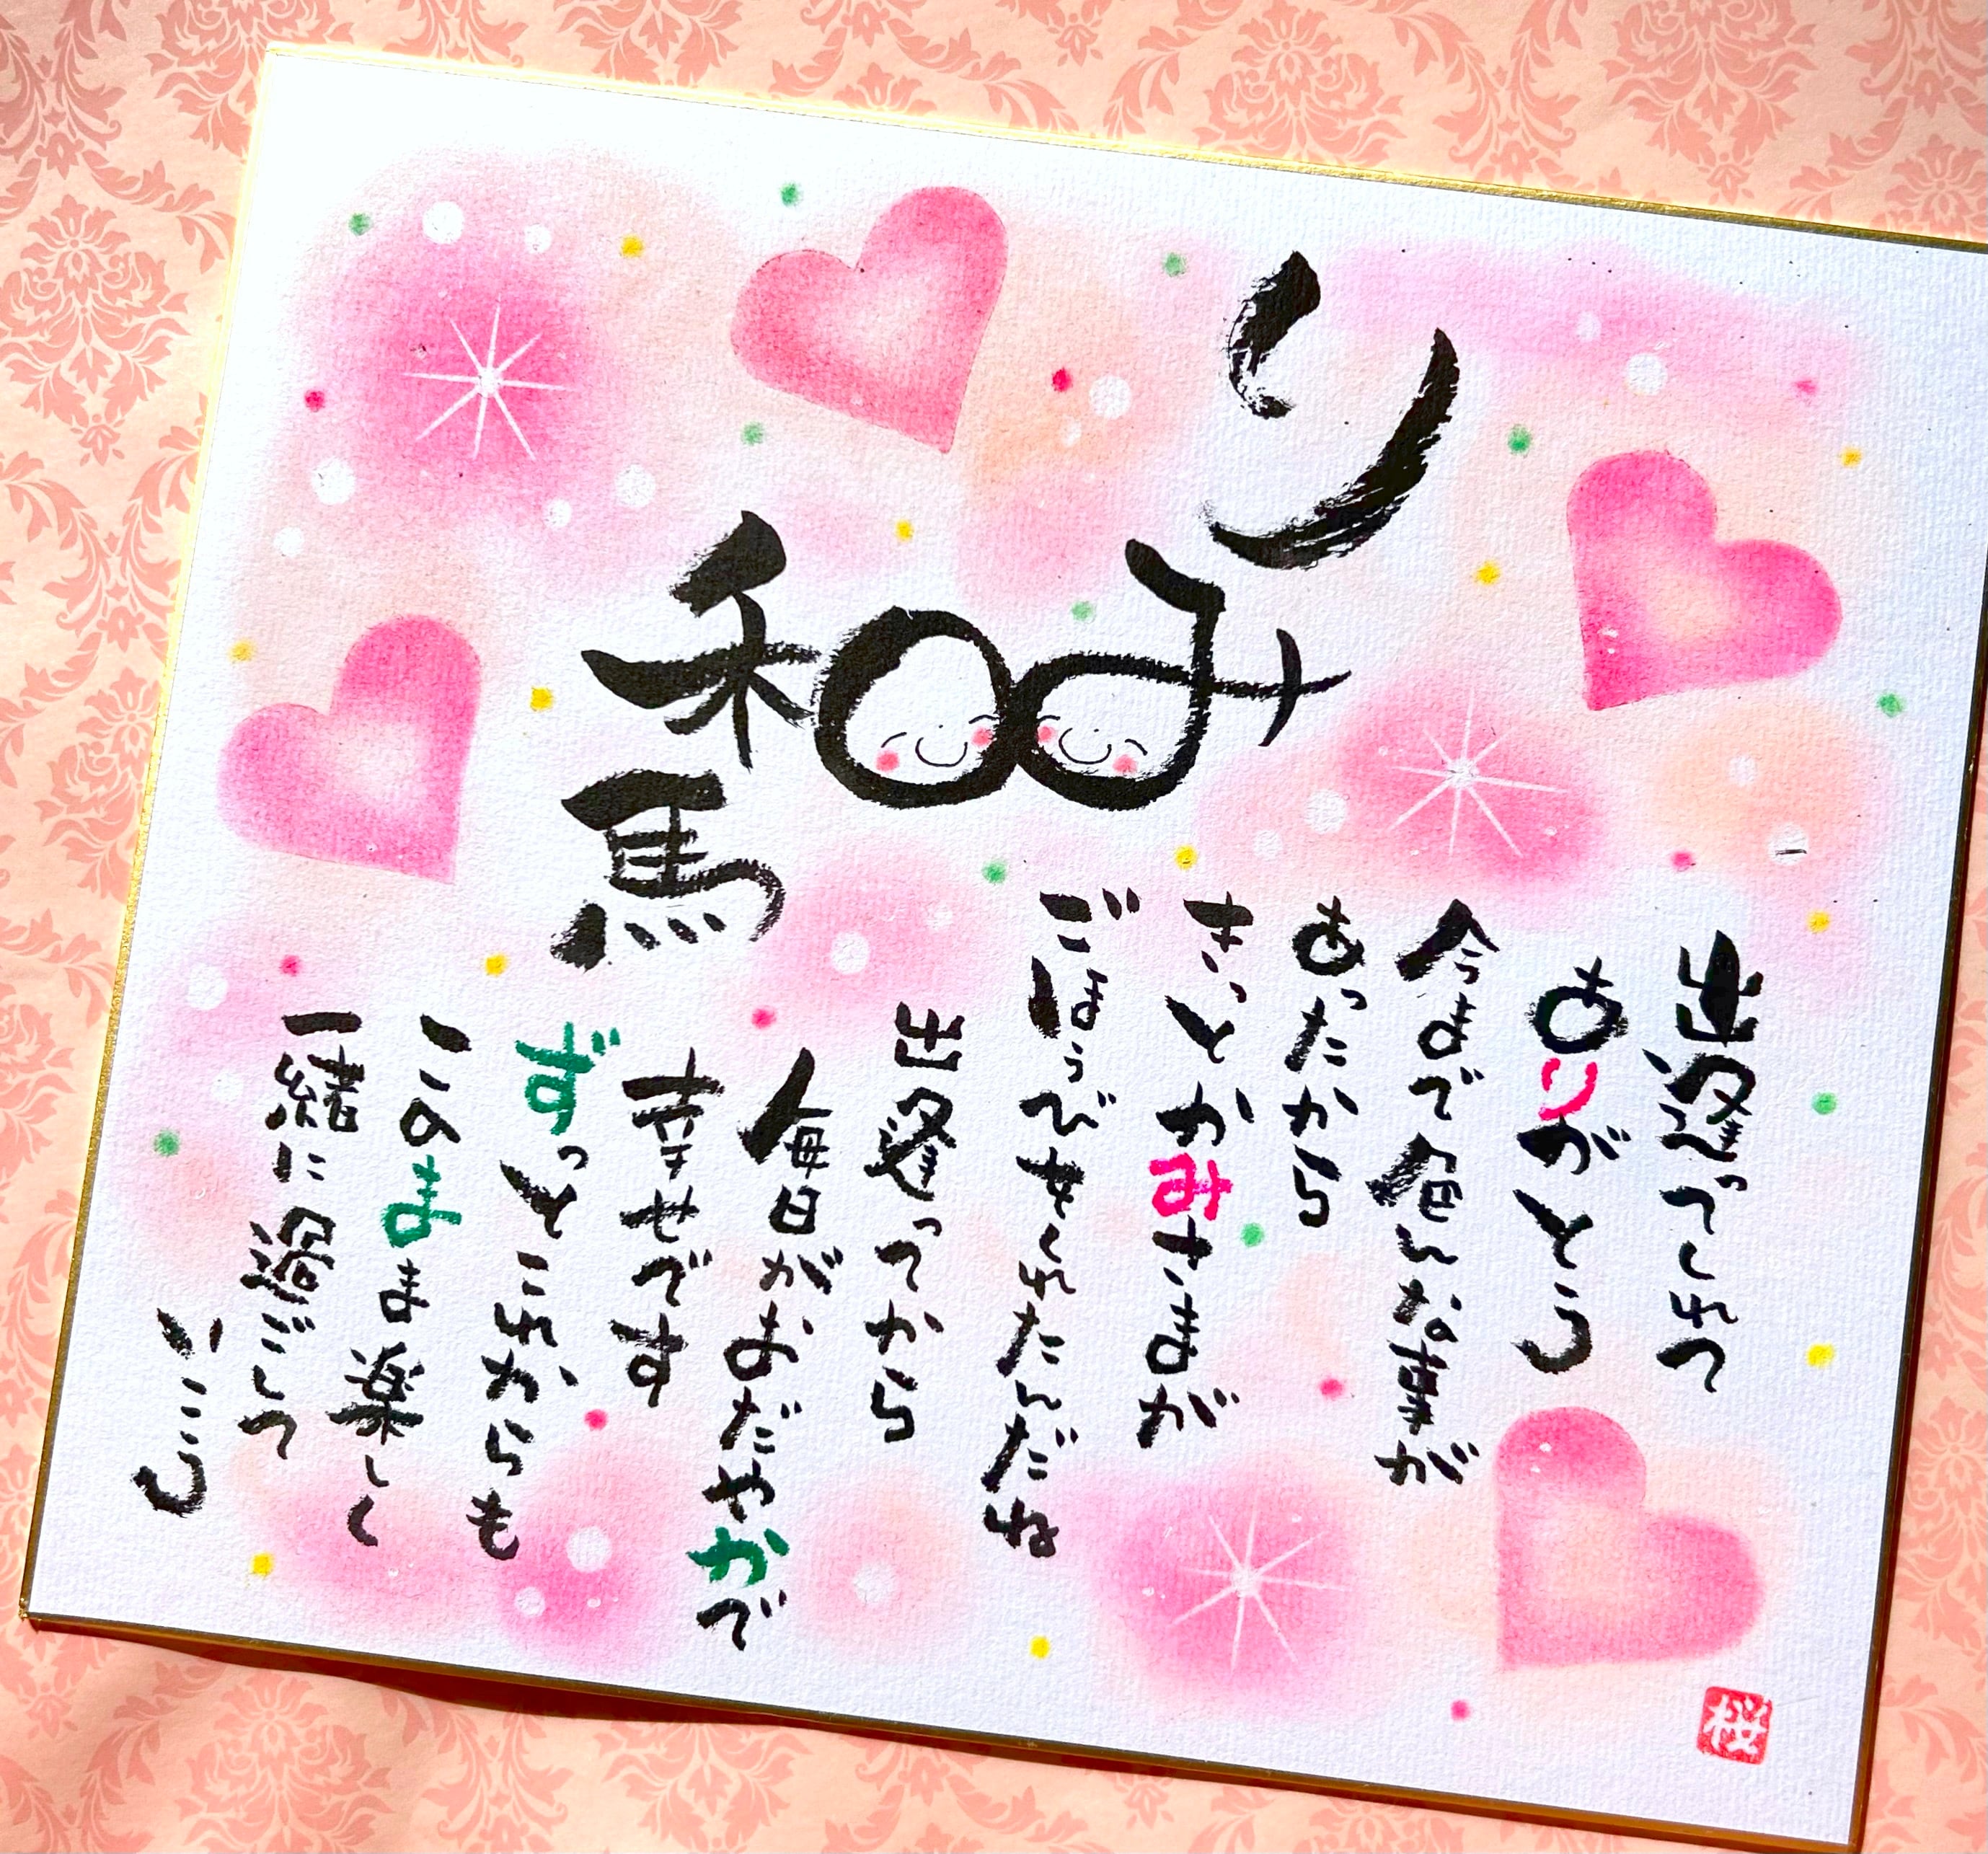 りみ
和馬
出逢ってくれて
ありがとう
今まで色んな事が
あったから
きっとかみさまが
ごほうびをくれたんだね
出逢ってから
毎日がおだやかで
幸せです
ずっとこれからも
このまま楽しく
一緒に過ごして
いこう
桜